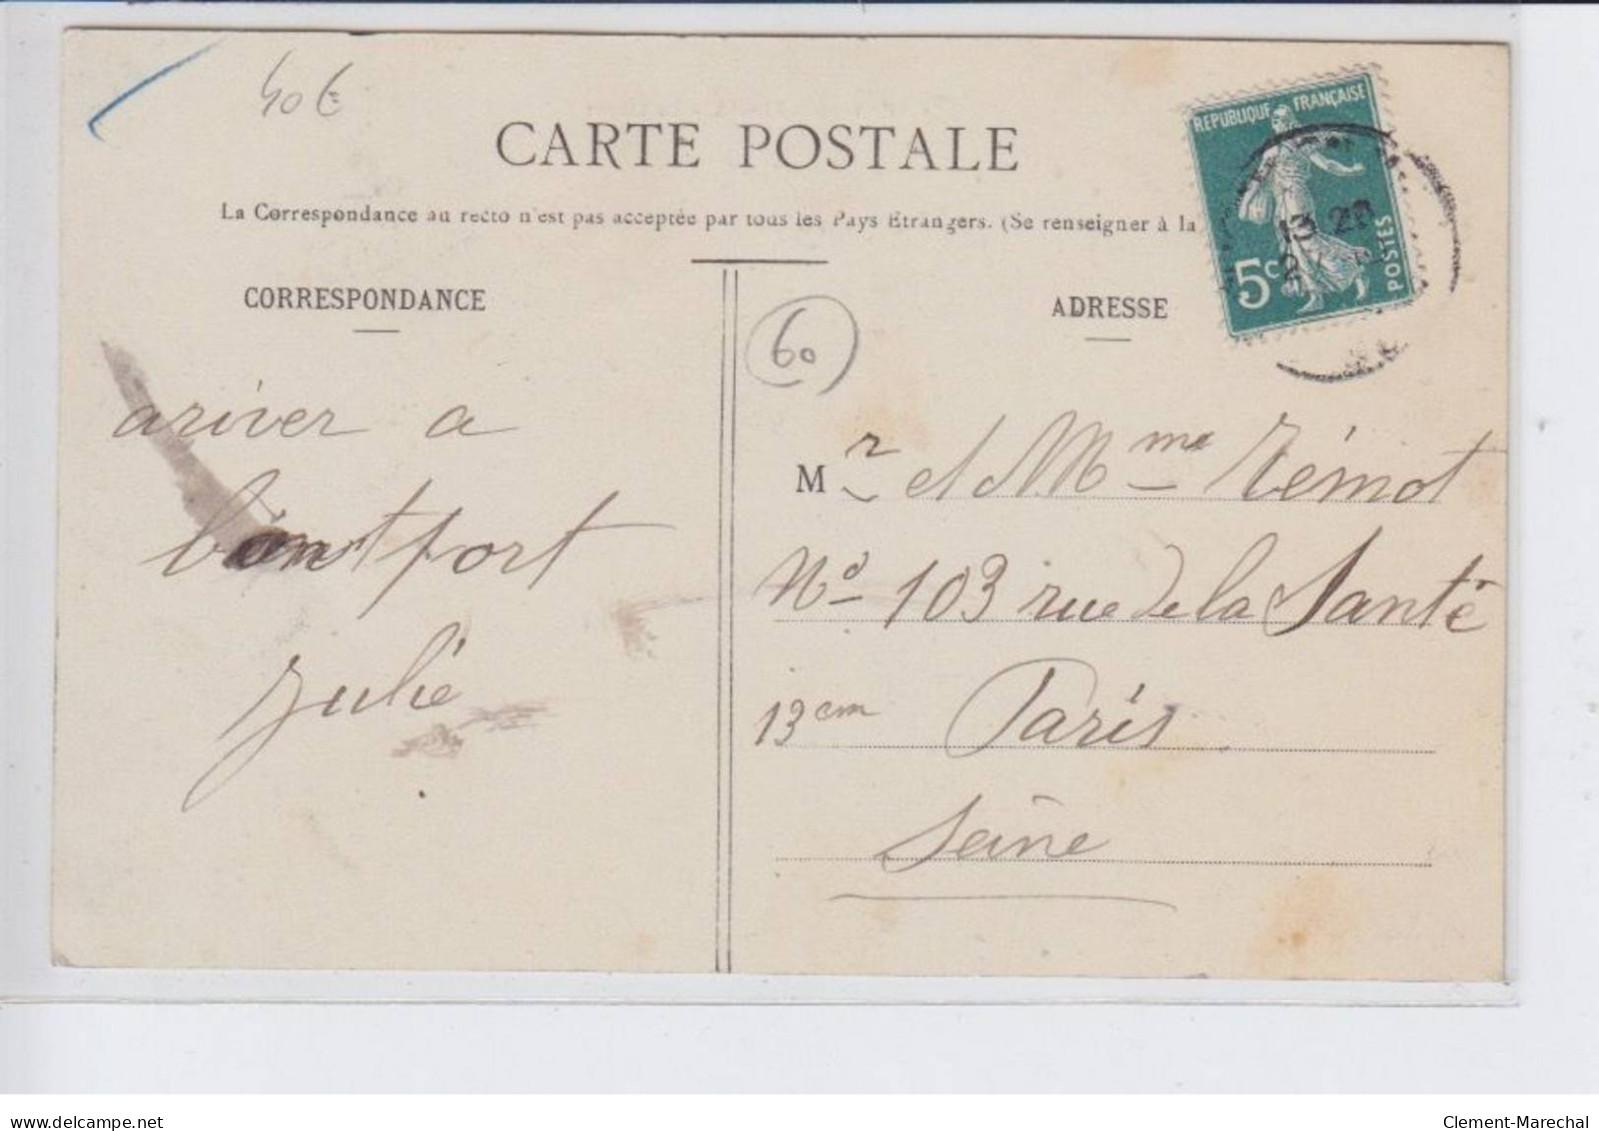 40 €
CARTE POSTALE
La Correspondance au recto n'est pas acceptée par tous les Pays Etrangers. (Se renseigner à la
REPUBLIQUE FRANÇAISE
5c POSTES
13 20
CORRESPONDANCE
ariver a
bont port
julie
60
ADRESSE
Mr et Mme Rémot
No 103 rue de la Santé
13em Paris
Seine
delcampe.net
Clement-Marechal